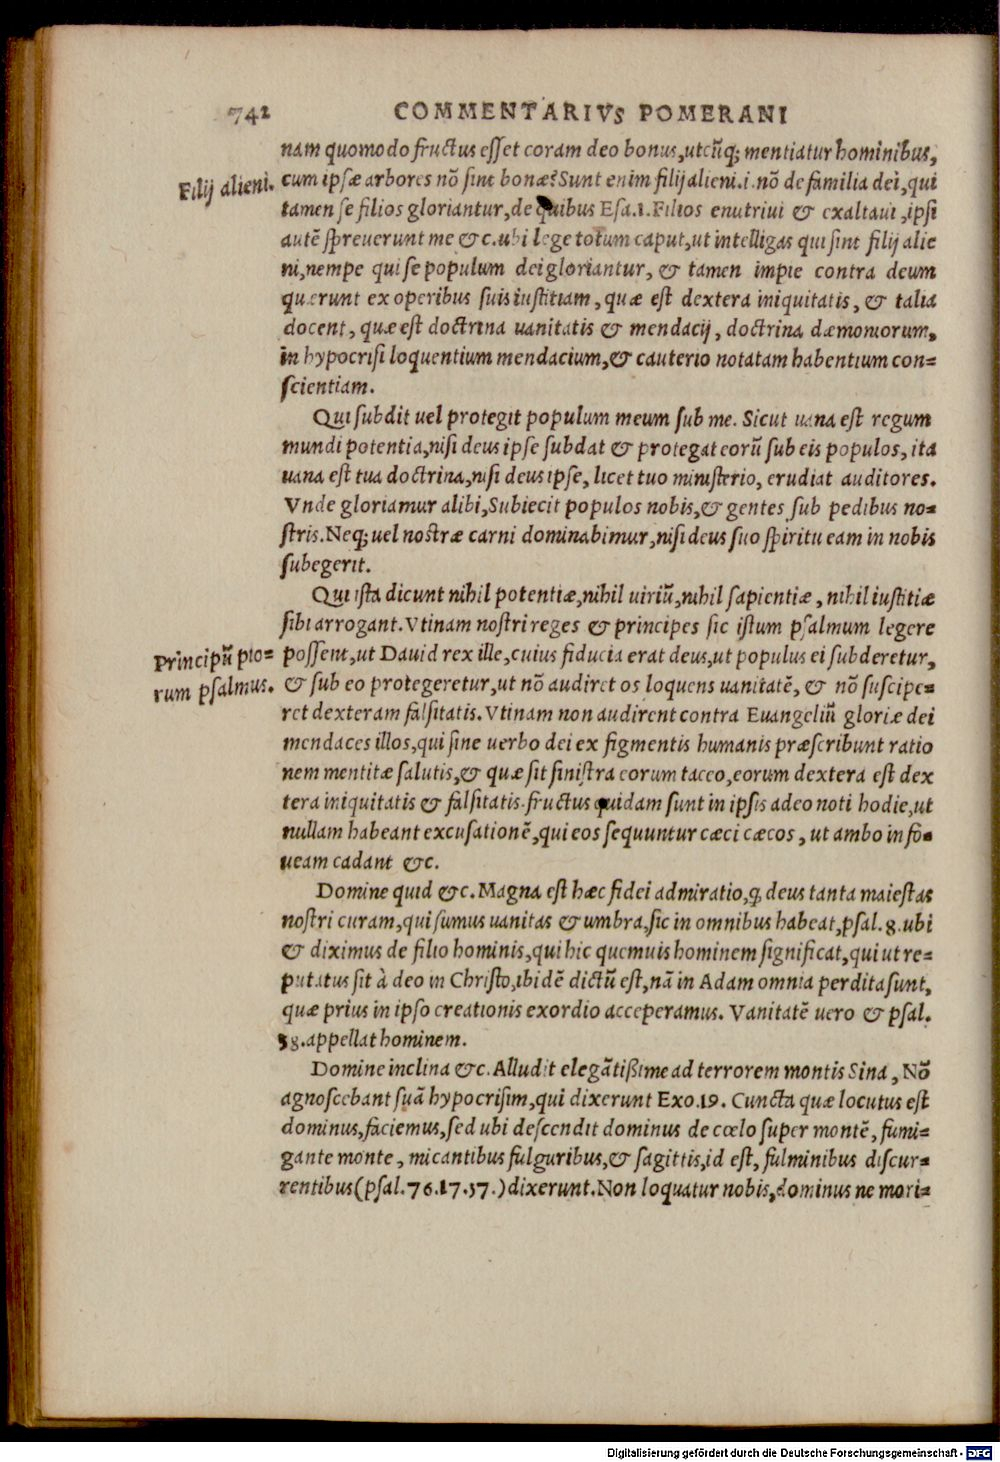 742 COMMENTARIVS POMERANI
nam quomodo fructus esset coram deo bonus, utcũq; mentiatur hominibus,
Filij alieni.
cum ipsæ arbores nõ sint bonæ? Sunt enim filij alieni.i. nõ de familia dei, qui
tamen se filios gloriantur, de quibus Esa.1. Filios enutriui & exaltaui, ipsi
autẽ spreuerunt me &c. ubi lege totum caput, ut intelligas qui sint filij alie
ni, nempe qui se populum dei gloriantur, & tamen impie contra deum
quærunt ex operibus suis iustitiam, quæ est dextera iniquitatis, & talia
docent, quæ est doctrina uanitatis & mendacij, doctrina dæmoniorum,
in hypocrisi loquentium mendacium, & cauterio notatam habentium con=
scientiam.
Qui subdit uel protegit populum meum sub me. Sicut uana est regum
mundi potentia, nisi deus ipse subdat & protegat eorũ sub eis populos, ita
uana est tua doctrina, nisi deus ipse, licet tuo ministerio, erudiat auditores.
Vnde gloriamur alibi, Subiecit populos nobis, & gentes sub pedibus no=
stris. Neq; uel nostræ carni dominabimur, nisi deus suo spiritu eam in nobis
subegerit.
Qui ista dicunt nihil potentiæ, nihil uiriũ, nihil sapientiæ, nihil iustitiæ
sibi arrogant. Vtinam nostri reges & principes sic istum psalmum legere
Principũ pio=
rum psalmus.
possent, ut Dauid rex ille, cuius fiducia erat deus, ut populus ei subderetur,
& sub eo protegeretur, ut nõ audiret os loquens uanitatẽ, & nõ suscipe=
ret dexteram falsitatis. Vtinam non audirent contra Euangeliũ gloriæ dei
mendaces illos, qui sine uerbo dei ex figmentis humanis præscribunt ratio
nem mentitæ salutis, & quæ sit sinistra eorum taceo, eorum dextera est dex
tera iniquitatis & falsitatis. fructus quidam sunt in ipsis adeo noti hodie, ut
nullam habeant excusationẽ, qui eos sequuntur cæci cæcos, ut ambo in fo=
ueam cadant &c.
Domine quid &c. Magna est hæc fidei admiratio, ꝙ deus tanta maiestas
nostri curam, qui sumus uanitas & umbra, sic in omnibus habeat, psal.8. ubi
& diximus de filio hominis, qui hic quemuis hominem significat, qui ut re=
putatus sit à deo in Christo, ibidẽ dictũ est, nã in Adam omnia perdita sunt,
quæ prius in ipso creationis exordio acceperamus. Vanitatẽ uero & psal.
38. appellat hominem.
Domine inclina &c. Alludit elegãtißime ad terrorem montis Sina, Nõ
agnoscebant suã hypocrisim, qui dixerunt Exo.19. Cuncta quæ locutus est
dominus, faciemus, sed ubi descendit dominus de cœlo super montẽ, fumi=
gante monte, micantibus fulguribus, & sagittis, id est, fulminibus discur=
rentibus (psal.76.17.37.) dixerunt. Non loquatur nobis, dominus ne mori=
Digitalisierung gefördert durch die Deutsche Forschungsgemeinschaft - DFG